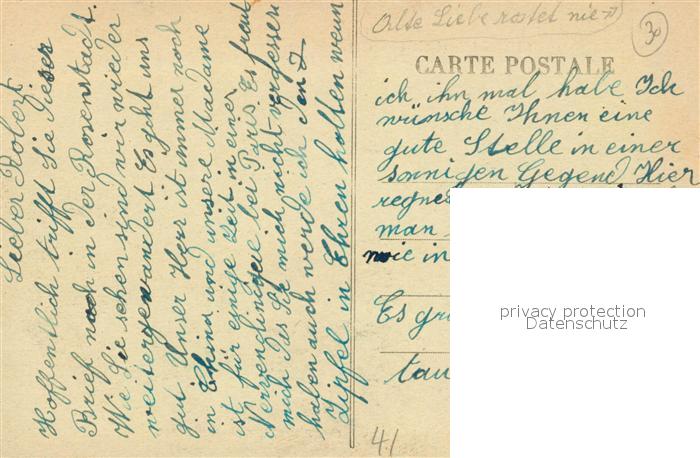 Lieber Robert
Hoffentlich trifft Sie dieser
Brief noch in der Rosenstadt.
Wie Sie sehen sind wir wieder
weitergewandert Es geht uns
gut Unser Herr ist immer noch
in China und unsere Madame
ist für einige Zeit in einer
bei Paris Es freut
mich das Sie mich nicht vergessen
haben auch werde ich den
Zipfel in Ehren halten wenn
Alte Liebe rostet nie
30
CARTE POSTALE
ich ihn mal habe Ich
wünsche Ihnen eine
gute Stelle in einer
sonnigen Gegend Hier
regne
man
wie in
Es gr
tau
41
privacy protection
Datenschutz